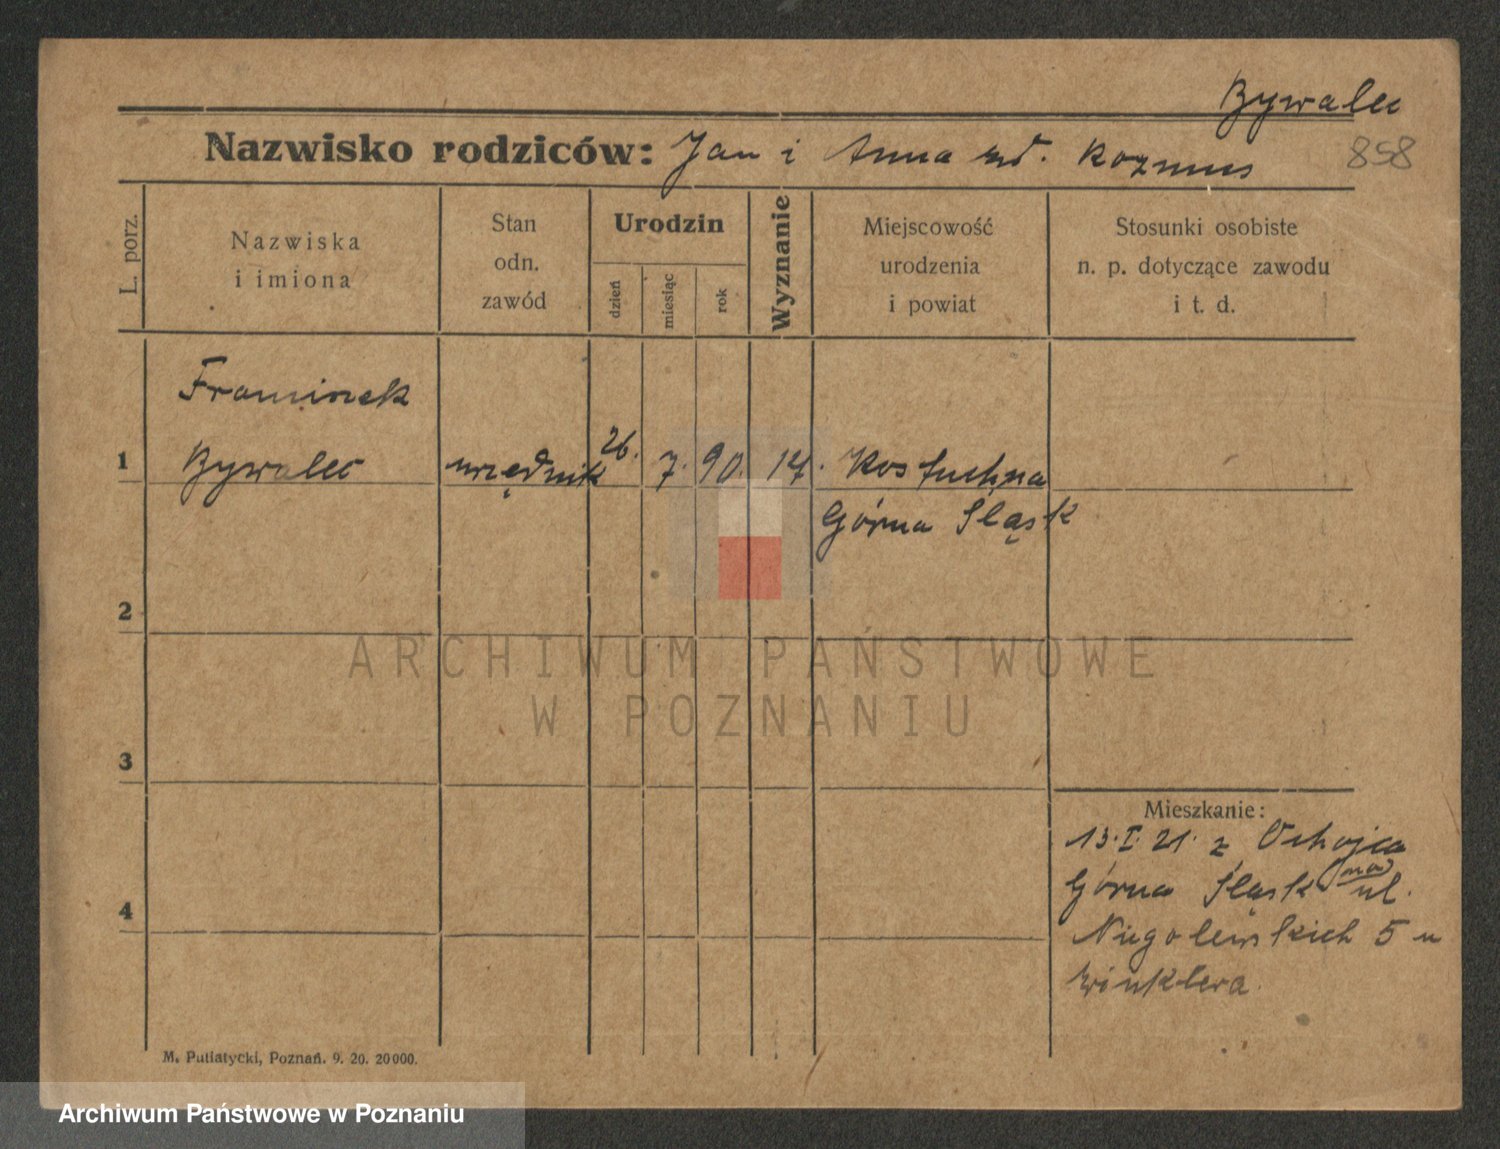 Bywalec
Nazwisko rodziców: Jan i Anna zd. Kozmus
858
L. porz.
Nazwiska
i imiona
Stan
odn.
zawód
Urodzin
dzień
miesiąc
rok
Wyznanie
Miejscowość
urodzenia
i powiat
Stosunki osobiste
n. p. dotyczące zawodu
i t. d.
Franciszek
1 Bywalec urzędnik 26. 7. 90. Kostuchna
Górna Śląsk
2
ARCHIWUM PAŃSTWOWE
W POZNANIU
3
Mieszkanie:
13.I.21. z Ochojca
Górna Śląsk na ul.
4
Niegolewskich 5 u
Winklera.
M. Putiatycki, Poznań. 9. 20. 20000.
Archiwum Państwowe w Poznaniu